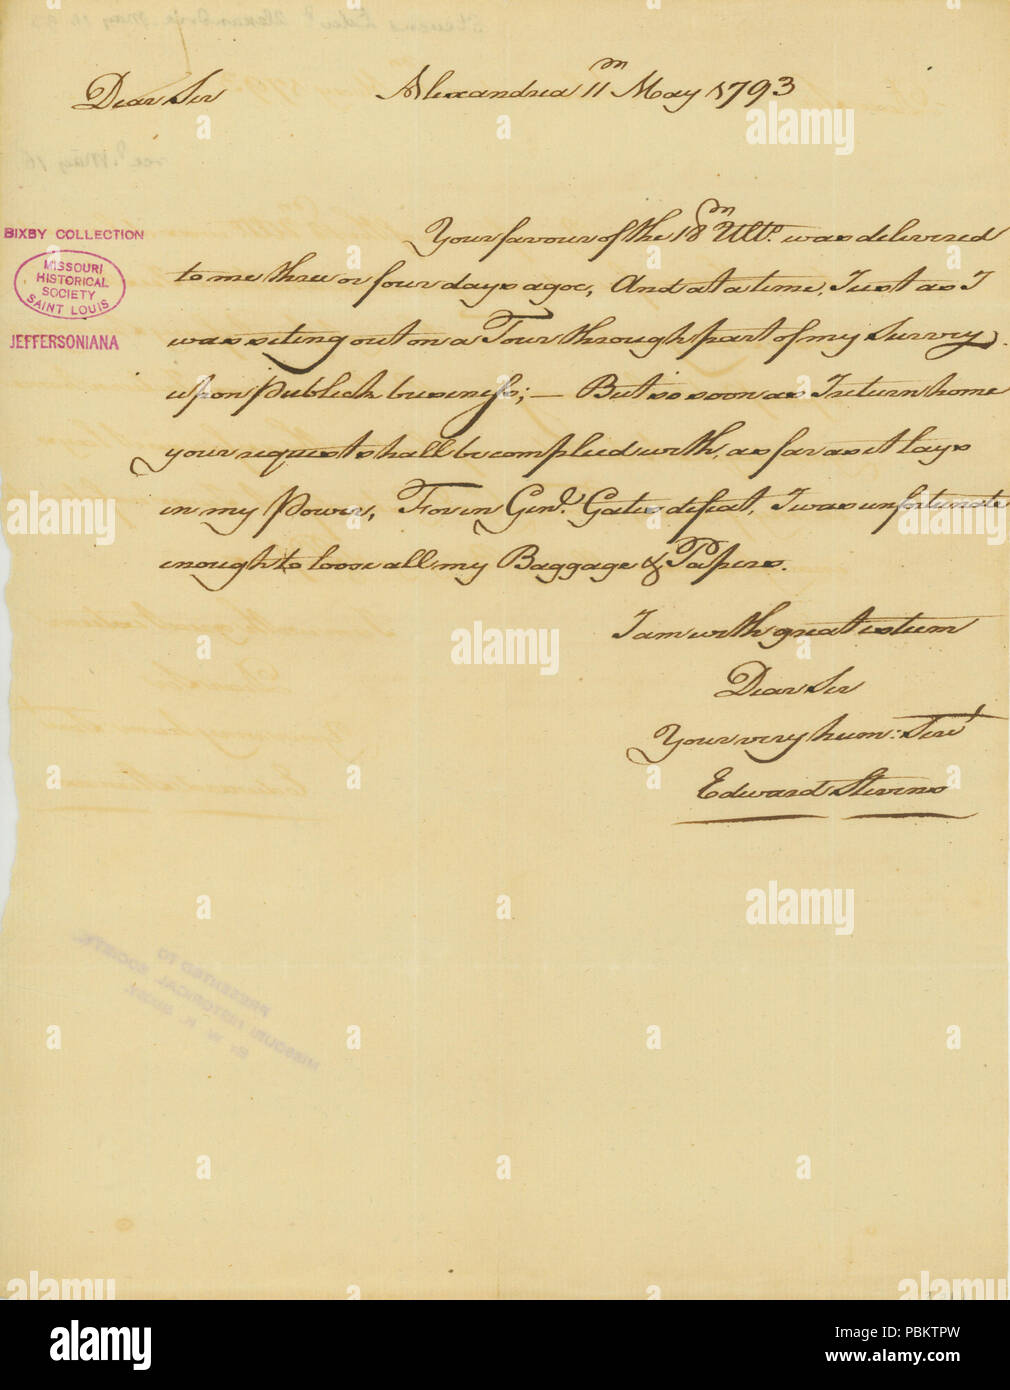 Dear Sir Alexandria 11th May 1793
Your favour of the 18th Ulto. was delivered
to me three or four days agoe, And at a time, Just as I
was siting out on a Tour through part of my Survey
upon Publick business; — But so soon as I return home
your request shall be complied with, as far as it lays
in my Power, For in Genl. Gates defeat, I was unfortunate
enough to loose all my Baggage & Papers.
I am with great esteem
Dear Sir
Your very hum: Servt
Edward Stevens
BIXBY COLLECTION
MISSOURI
HISTORICAL
SOCIETY
SAINT LOUIS
JEFFERSONIANA
PRESENTED TO
MISSOURI HISTORICAL SOCIETY
By W. K. BIXBY.
alamy
alamy
Image ID: PBKTPW
www.alamy.com